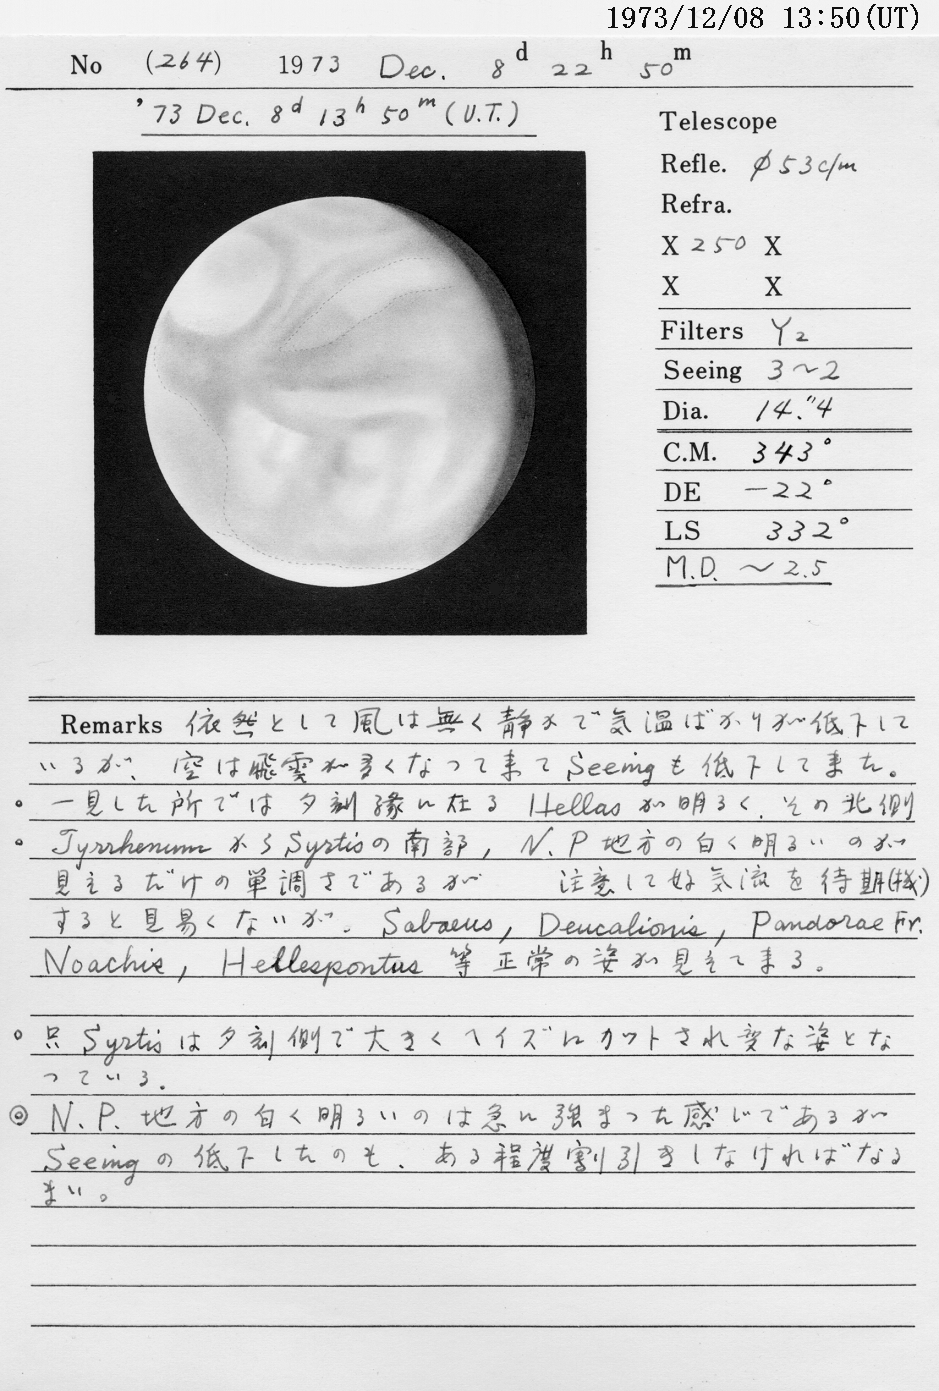 1973/12/08 13:50(UT)
No (264) 1973 Dec. 8d 22h 50m
'73 Dec. 8d 13h 50m (U.T.)
Telescope
Refle. φ53c/m
Refra.
X 250 X
X X
Filters Y2
Seeing 3~2
Dia. 14."4
C.M. 343°
DE -22°
LS 332°
M.D. ~2.5
Remarks 依然として風は無く静かで気温ばかりが低下して
いるが、空は飛雲が多くなって来てSeeingも低下して来た。
◦ 一見した所では夕刻縁に在るHellasが明るく、その北側
◦ TyrrhenumからSyrtisの南部, N.P地方の白く明るいのが
見えるだけの単調さであるが 注意して好気流を待期(機)
すると見易くないが。Sabaeus, Deucalionis, Pandorae Fr.
Noachis, Hellespontus等正常の姿が見えて来る。
◦ 只Syrtisは夕刻側で大きくヘイズにカットされ変な姿とな
っている.
◎ N.P.地方の白く明るいのは急に強まった感じであるが
Seeingの低下したのも、ある程度割引きしなければなる
まい。